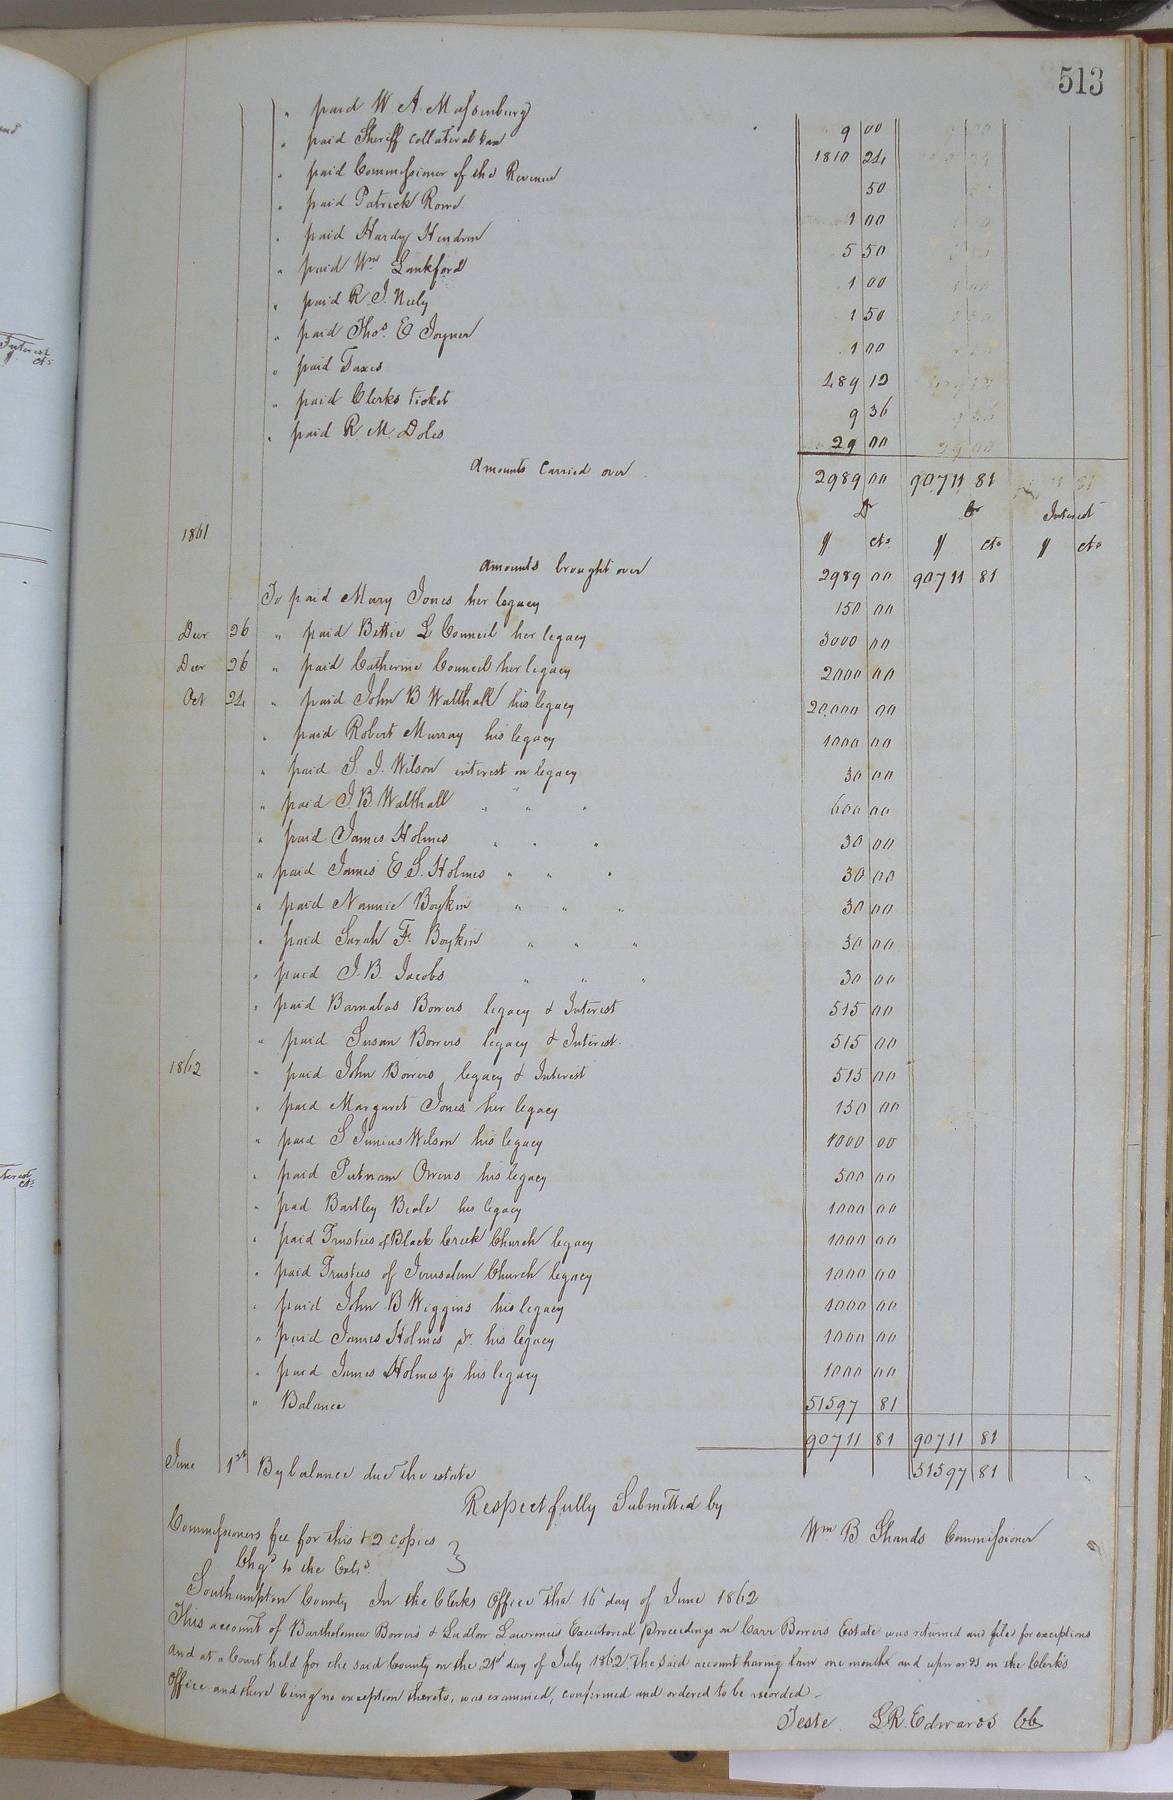 513
" paid W A Massenburg 9 00
" paid Sheriff collateral tax 1810 24
" paid Commissioner of the Revenue 50
" paid Patrick Rowe 1 00
" paid Hardy Hendron 5 50
" paid Wm Lankford 1 00
" paid R. J. Neely 1 50
" paid Thos. E Joyner 1 00
" paid Taxes 489 12
" paid Clerks ticket 9 36
" paid R. M. Doles 29 00
Amounts Carried over 2989 00 90711 81
Dr Cr Interest
1861 $ cts $ cts $ cts
Amounts brought over 2989 00 90711 81
To paid Mary Jones her legacy 150 00
Decr 26 " paid Bettie L Council her legacy 3000 00
Decr 26 " paid Catherine Council her legacy 2000 00
Oct 24 " paid John B Walthall his legacy 20,000 00
" paid Robert Murray his legacy 1000 00
" paid S. J. Wilson interest on legacy 30 00
" paid J B Walthall " " " 600 00
" paid James Holmes " " " 30 00
" paid James E. S. Holmes " " " 30 00
" paid Nannie Boykin " " " 30 00
" paid Sarah F. Boykin " " " 30 00
" paid J. B. Jacobs " " " 30 00
" paid Barnabas Bowers legacy & Interest 515 00
" paid Susan Bowers legacy & Interest. 515 00
1862 " paid John Bowers legacy & Interest 515 00
" paid Margaret Jones her legacy 150 00
" paid S Junius Wilson his legacy 1000 00
" paid Putnam Owens his legacy 500 00
" paid Bartley Beale his legacy 1000 00
" paid Trustees of Black Creek Church legacy 1000 00
" paid Trustees of Jerusalem Church legacy 1000 00
" paid John B Wiggins his legacy 1000 00
" paid James Holmes Sr. his legacy 1000 00
" paid James Holmes jr his legacy 1000 00
" Balance 51597 81
90711 81 90711 81
June 1st By balance due the estate 51597 81
Respectfully Submitted by
Wm B Shands Commissioner
Commissioners fee for this & 2 copies
Chgd to the Exts.
Southampton County In the Clerks Office the 16 day of June 1862
This account of Bartholomew Bowers & Ludlow Lawrences Executorial Proceedings on Carr Bowers Estate was returned and filed for exceptions
And at a Court held for the said County on the 21st day of July 1862, The said account having lain one month and upwards in the Clerk's
Office and there being no exception thereto, was examined, confirmed and ordered to be recorded.
Teste L R. Edwards CC